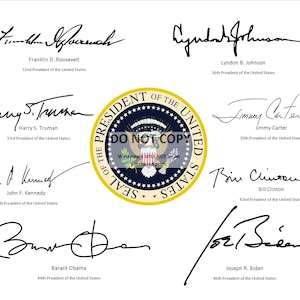 Franklin D Roosevelt
Franklin D. Roosevelt
32nd President of the United States
Lyndon B Johnson
Lyndon B. Johnson
36th President of the United States
Harry S. Truman
Harry S. Truman
33rd President of the United States
Jimmy Carter
Jimmy Carter
39th President of the United States
SEAL OF THE PRESIDENT OF THE UNITED STATES
DO NOT COPY
John F. Kennedy
35th President of the United States
Bill Clinton
Bill Clinton
42nd President of the United States
Barack Obama
44th President of the United States
Joe Biden
Joseph R. Biden
46th President of the United States